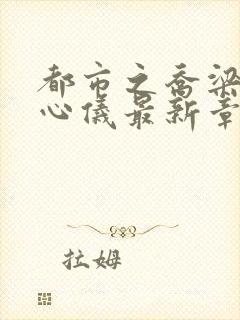 都市之乔梁
心仪最新章
拉姆